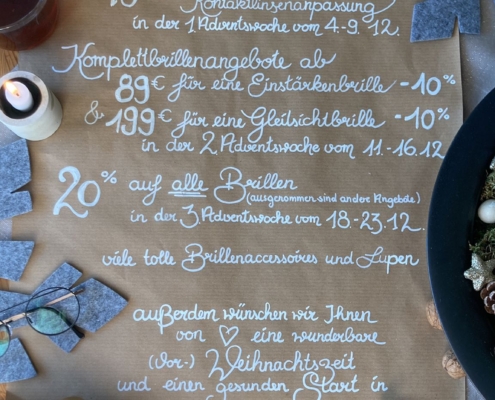 Kontaktlinsenanpassung
in der 1. Adventswoche vom 4.-9. 12.
Komplettbrillenangebote ab
89€ für eine Einstärkenbrille -10%
& 199€ für eine Gleitsichtbrille -10%
in der 2. Adventswoche vom 11.-16.12
20% auf alle Brillen
(ausgenommen sind andere Angebote)
in der 3. Adventswoche vom 18.-23.12.
viele tolle Brillenaccessoires und Lupen
außerdem wünschen wir Ihnen
von ♡ eine wunderbare
(Vor-) Weihnachtszeit
und einen gesunden Start in